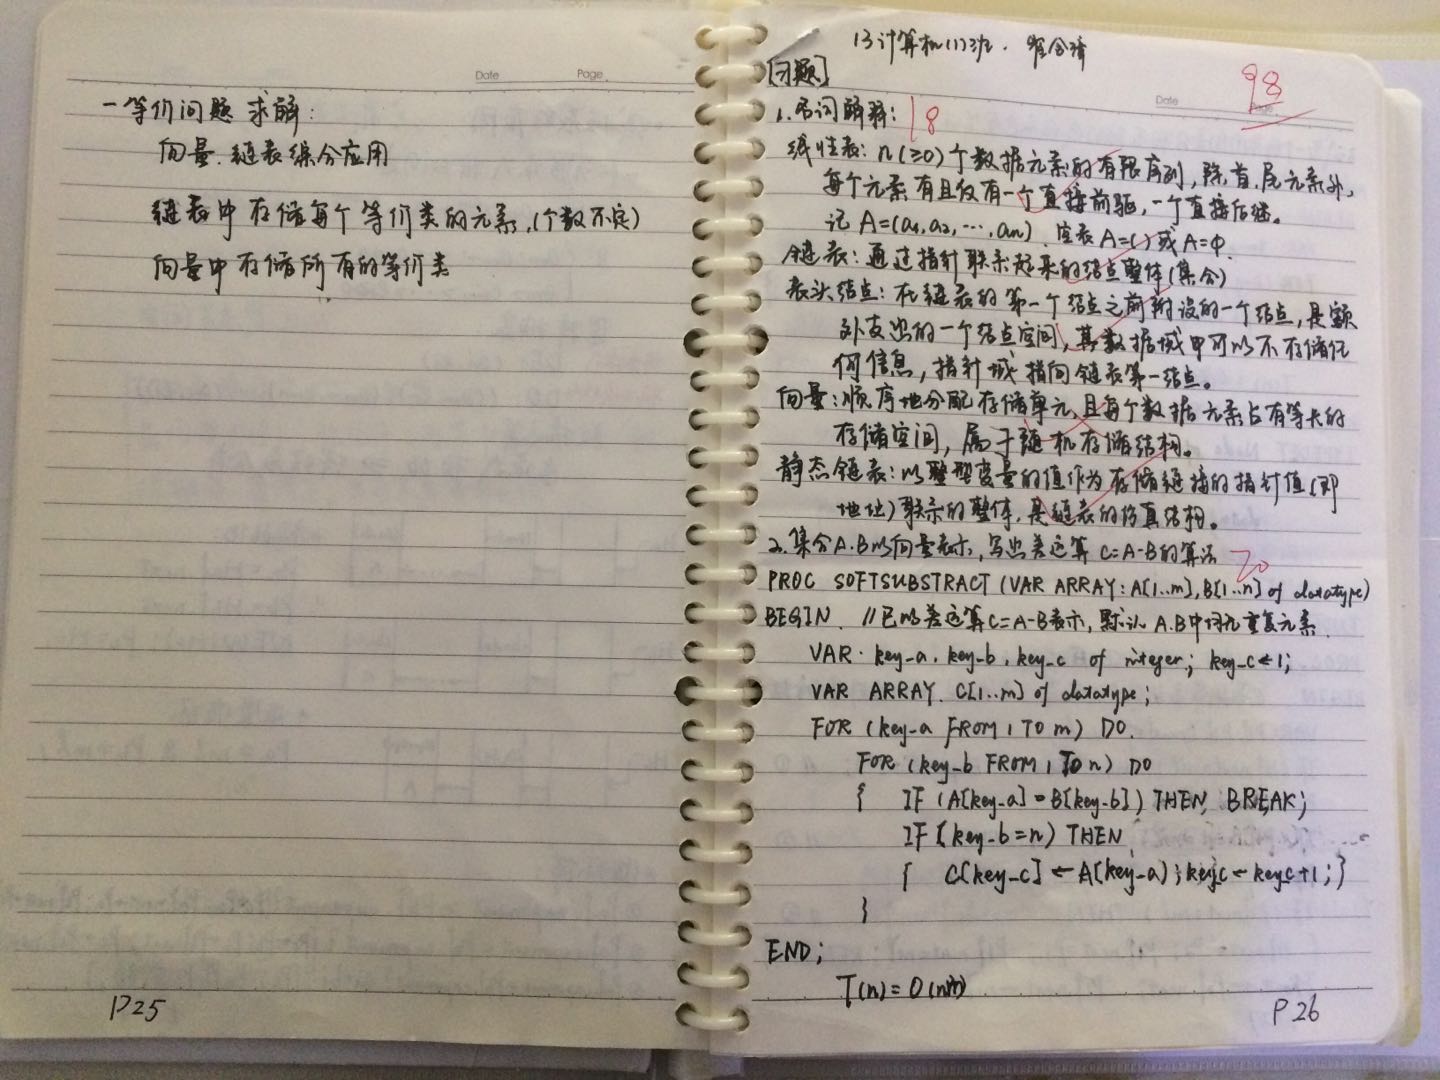 Date Page
一 等价问题 求解:
向量.链表综合应用
链表中存储每个等价类的元素.(个数不定)
向量中存储所有的等价类
P25
13计算机(1)班.
[习题]
98
Date Page
1.名词解释: 18
线性表: n(≥0)个数据元素的有限序列, 除首.尾元素外,
每个元素有且仅有一个直接前驱, 一个直接后继。
记 A=(a₁,a₂,…,aₙ). 空表A=()或A=Φ.
链表: 通过指针联系起来的结点整体(集合)
表头结点: 在链表的第一个结点之前附设的一个结点, 是额
外支出的一个结点空间, 其数据域中可以不存储任
何信息, 指针域指向链表第一结点。
向量: 顺序地分配存储单元, 且每个数据元素占有等长的
存储空间, 属于随机存储结构。
静态链表: 以整型变量的值作为存储链接的指针值(即
地址)联系的整体, 是链表的仿真结构。
2.集合A.B以向量表示, 写出差运算 C=A-B的算法 20
PROC SOFTSUBSTRACT (VAR ARRAY: A[1..m], B[1..n] of datatype)
BEGIN. //已以差运算C=A-B表示, 默认A.B中均无重复元素.
VAR. key_a, key_b, key_c of integer; key_c←1;
VAR ARRAY. C[1..m] of datatype;
FOR (key_a FROM 1 TO m) DO.
FOR (key_b FROM 1 TO n) DO
{ IF (A[key_a] = B[key_b]) THEN BREAK;
IF (key_b=n) THEN
{ C[key_c] ← A[key_a]; key_c ← key_c+1; }
}
END;
T(n) = O(nm)
P26